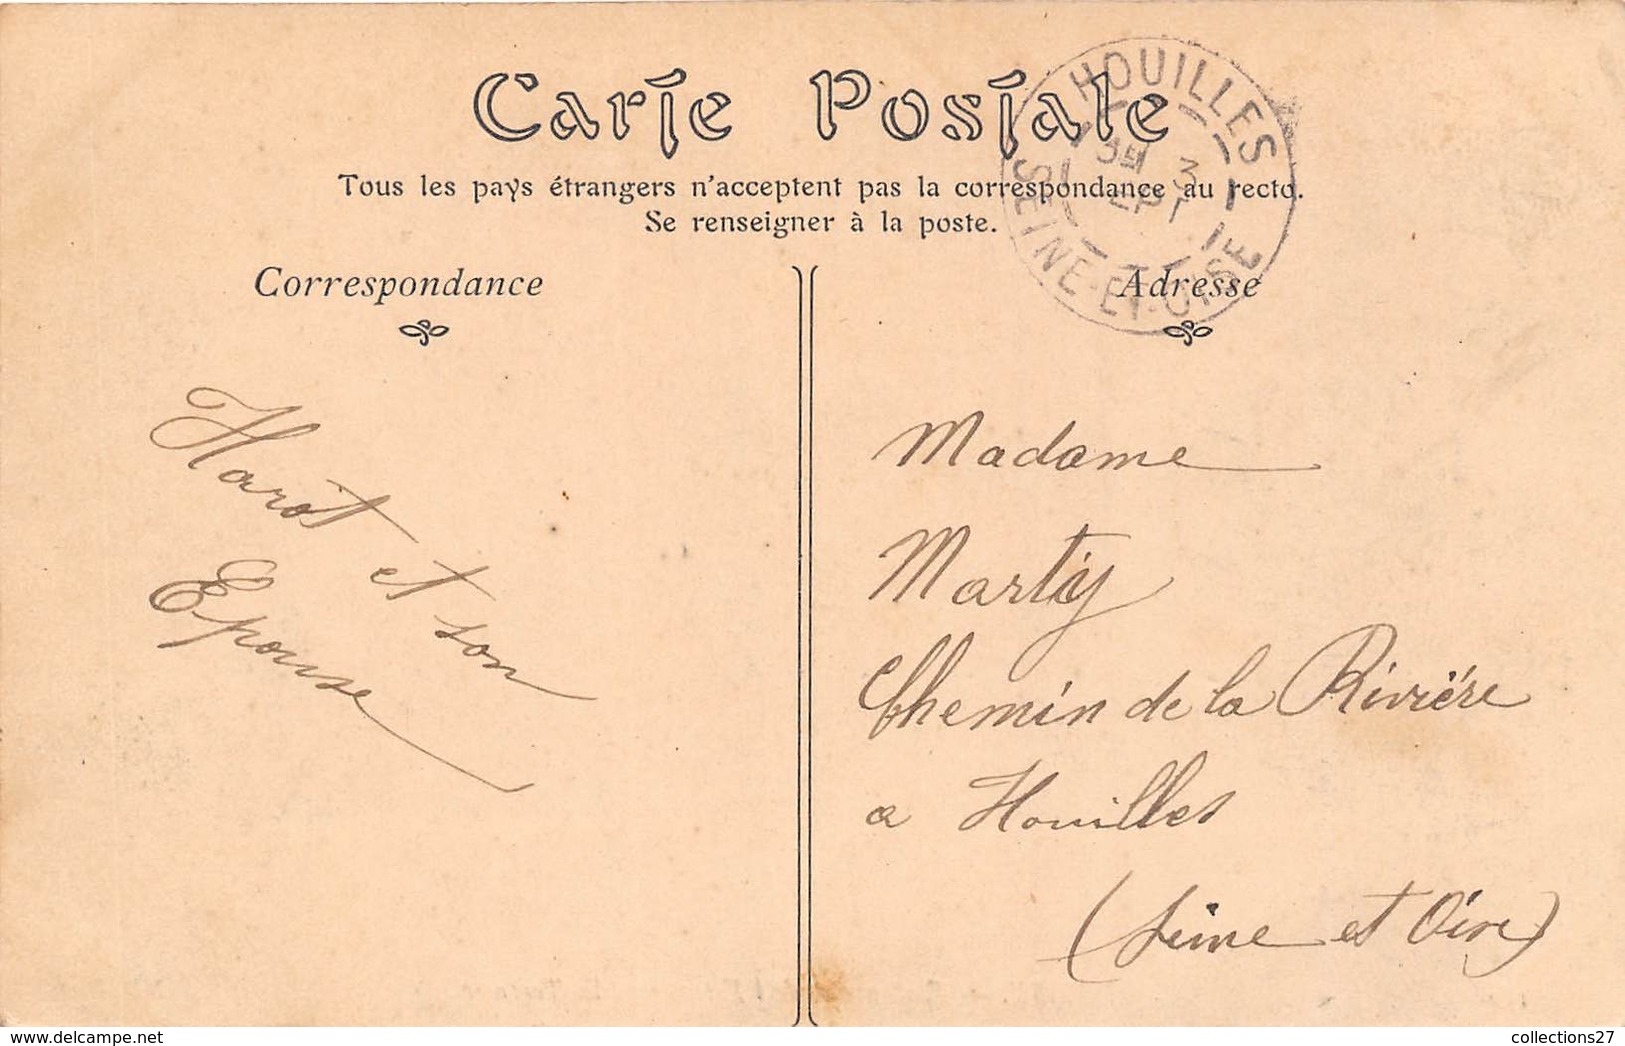 Carte Postale
Tous les pays étrangers n'acceptent pas la correspondance au recto.
Se renseigner à la poste.
HOUILLES
3
SEPT
SEINE-ET-OISE
Correspondance
Adresse
Harot et son
Epouse
Madame
Marty
Chemin de la Riviére
a Houilles
(Seine et Oise)
www.delcampe.net
collections27